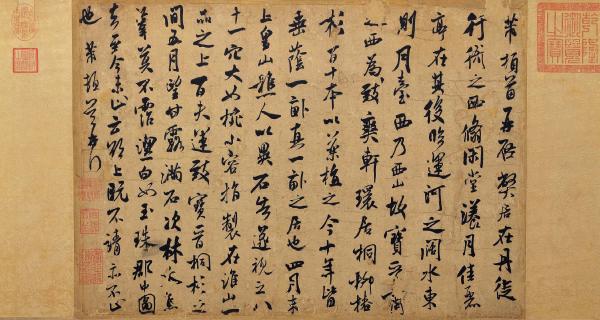 芾頓首再啓弊居在丹徒
行衙之西翛閑堂漾月佳麗
亭在其後臨運河之闊水東
則月臺西乃西山故寶晉齋
之西爲致爽軒環居桐柳椿
杉百十本以藥植之今十年皆
垂蔭一畝真一畝之居也四月末
上皇山樵人以異石告遂視之八
十一穴大如椀小容指製在淮山一
品之上百夫運致寶晉桐杉之
間五月望甘露滿石次林木焦
葦莫不霑潔白如玉珠郡中圖
去至今未止云欲上既不請亦不止
也 芾頓首再拜